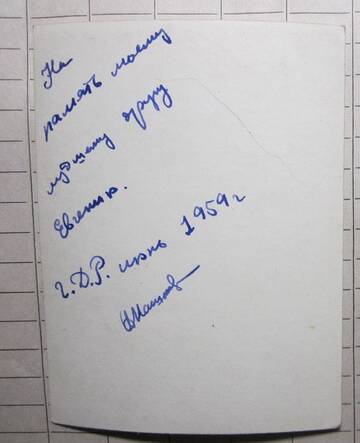 На
память моему
лучшему другу
Евгению.
Г.Д.Р. июнь 1959 г